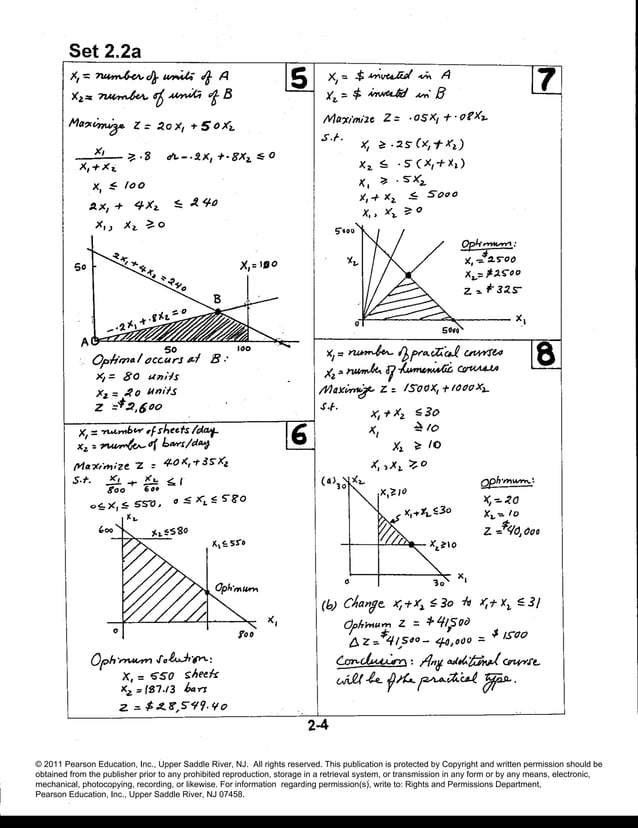 Set 2.2a
5
x₁ = number of units of A
x₂ = number of units of B
Maximize Z = 20x₁ + 50x₂
x₁/(x₁+x₂) ≥ .8 or -.2x₁ + .8x₂ ≤ 0
x₁ ≤ 100
2x₁ + 4x₂ ≤ 240
x₁, x₂ ≥ 0
50
2x₁+4x₂=240
x₁=100
B
-.2x₁+.8x₂=0
A
50 100
Optimal occurs at B:
x₁ = 80 units
x₂ = 20 units
Z = $2,600
6
x₁ = number of sheets/day
x₂ = number of bars/day
Maximize Z = 40x₁+35x₂
S.t. x₁/800 + x₂/600 ≤ 1
0≤x₁≤550, 0≤x₂≤580
x₂
600
x₂≤580
x₁≤550
Optimum
x₁
0 800
Optimum solution:
x₁ = 550 sheets
x₂ = 187.13 bars
Z = $28,549.40
7
x₁ = $ invested in A
x₂ = $ invested in B
Maximize Z = .05x₁ + .08x₂
S.t.
x₁ ≥ .25(x₁+x₂)
x₂ ≤ .5(x₁+x₂)
x₁ ≥ .5x₂
x₁+x₂ ≤ 5000
x₁, x₂ ≥ 0
5000
x₂
Optimum:
x₁ = $2500
x₂ = $2500
Z = $325
0 5000 x₁
8
x₁ = number of practical courses
x₂ = number of humanistic courses
Maximize Z = 1500x₁+1000x₂
S.t.
x₁+x₂ ≤30
x₁ ≥10
x₂ ≥ 10
x₁,x₂ ≥0
(a) 30 x₂
x₁≥10
x₁+x₂≤30
x₂≥10
0 30 x₁
Optimum:
x₁=20
x₂=10
Z=$40,000
(b) Change x₁+x₂ ≤ 30 to x₁+x₂ ≤ 31
Optimum Z = $41,500
ΔZ=$41,500 - 40,000 = $1500
Conclusion: Any additional course
will be of the practical type.
2-4
© 2011 Pearson Education, Inc., Upper Saddle River, NJ. All rights reserved. This publication is protected by Copyright and written permission should be
obtained from the publisher prior to any prohibited reproduction, storage in a retrieval system, or transmission in any form or by any means, electronic,
mechanical, photocopying, recording, or likewise. For information regarding permission(s), write to: Rights and Permissions Department,
Pearson Education, Inc., Upper Saddle River, NJ 07458.